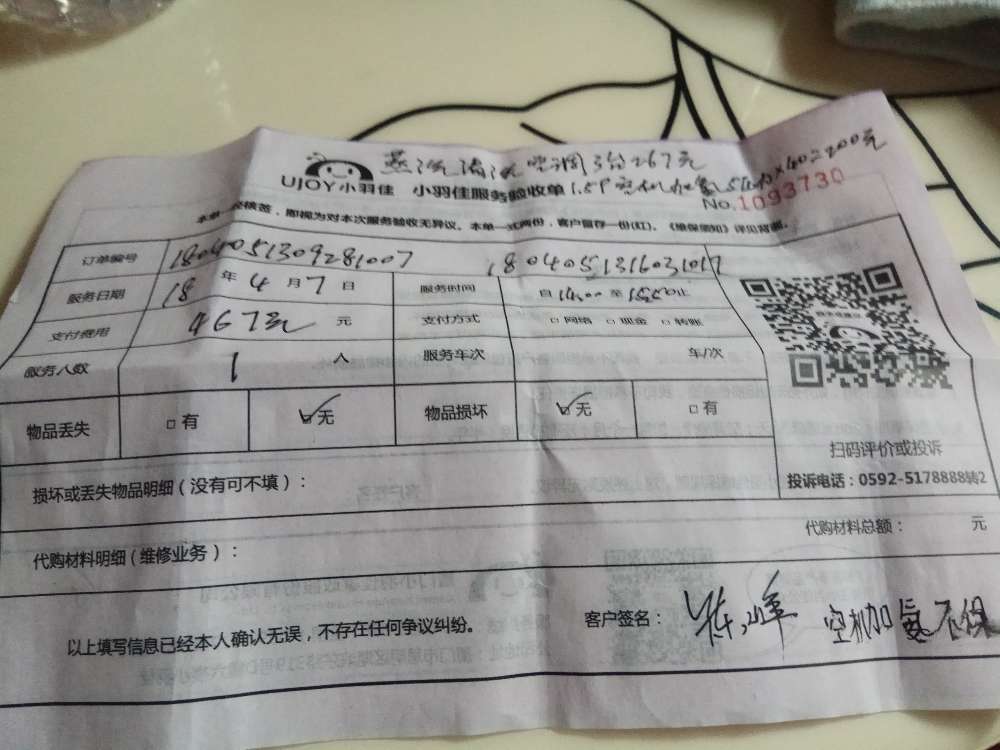 蒸汽清洗空调3台267元
UJOY小羽佳 小羽佳服务验收单 1.5P空机加氨5个加×40=200元
No.1093730
本单一经核签，即视为对本次服务验收无异议。本单一式两份，客户留存一份(红)。《维保须知》详见背面。
订单编号 1804051309281007 1804051316031017
服务日期 18年4月7日 服务时间 自14:00至15:50止
支付费用 467元 元 支付方式 □网络 □现金 □转账
服务人数 1 人 服务车次 年/次
物品丢失 □有 ☑无 物品损坏 ☑无 □有
扫码评价或投诉
投诉电话：0592-5178888转2
损坏或丢失物品明细（没有可不填）：
代购材料总额： 元
代购材料明细（维修业务）：
以上填写信息已经本人确认无误，不存在任何争议纠纷。
客户签名： 空机加氨不保